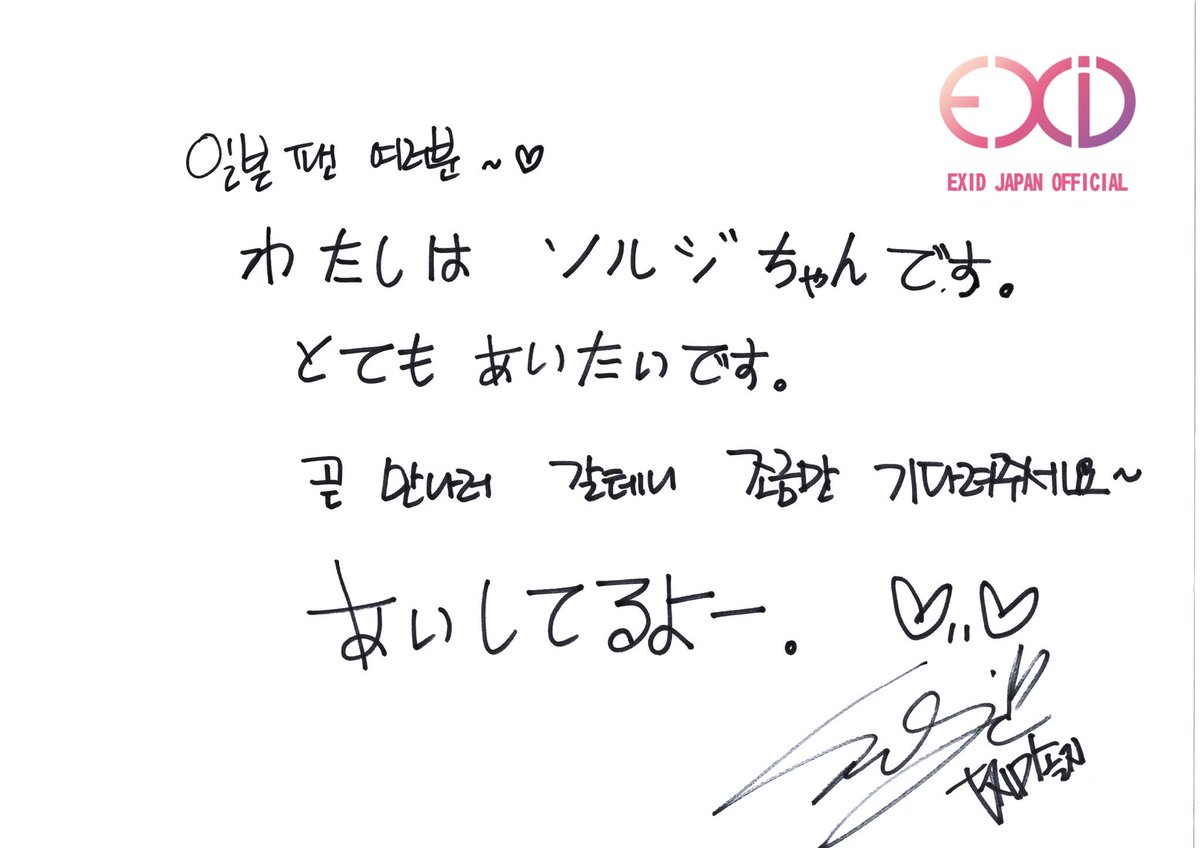 EXID
EXID JAPAN OFFICIAL
일본 팬 여러분~♡
わたしは ソルジちゃんです。
とても あいたいです。
곧 만나러 갈테니 조금만 기다려주세요~
あいしてるよー。♡,,♡